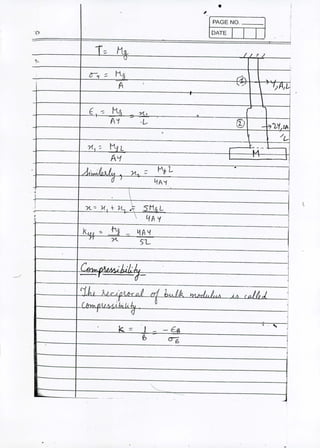 PAGE NO.
DATE
T = Mg
σ₁ = Mg / A
① → Y, A, L
ε₁ = Mg / AY = x₁ / L
② → 2Y, 2A, L
x₁ = MgL / AY
M
Similarly, x₂ = MgL / 4AY
x = x₁ + x₂ = 5MgL / 4AY
Keff = Mg / x = 4AY / 5L
Compressibility
The reciprocal of bulk modulus is called
compressibility.
K = 1 / B = -ϵB / σB